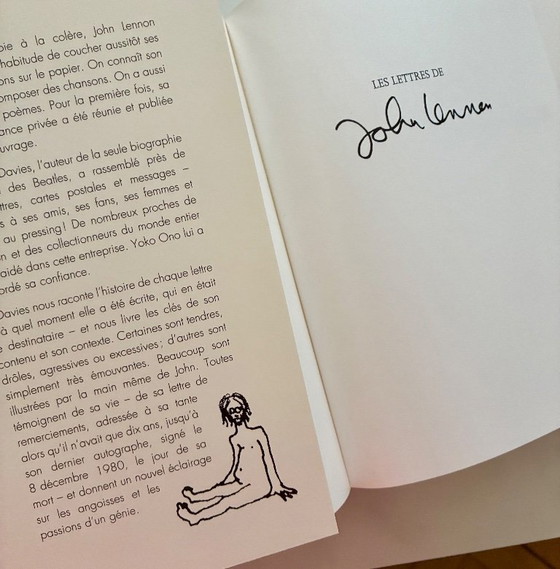 oie à la colère, John Lennon
habitude de coucher aussitôt ses
ons sur le papier. On connaît son
omposer des chansons. On a aussi
poèmes. Pour la première fois, sa
ance privée a été réunie et publiée
uvrage.
Davies, l'auteur de la seule biographie
des Beatles, a rassemblé près de
ttres, cartes postales et messages –
s à ses amis, ses fans, ses femmes et
au pressing! De nombreux proches de
n et des collectionneurs du monde entier
aidé dans cette entreprise. Yoko Ono lui a
ordé sa confiance.
Davies nous raconte l'histoire de chaque lettre
à quel moment elle a été écrite, qui en était
e destinataire – et nous livre les clés de son
contenu et son contexte. Certaines sont tendres,
drôles, agressives ou excessives; d'autres sont
simplement très émouvantes. Beaucoup sont
illustrées par la main même de John. Toutes
témoignent de sa vie – de sa lettre de
remerciements, adressée à sa tante
alors qu'il n'avait que dix ans, jusqu'à
son dernier autographe, signé le
8 décembre 1980, le jour de sa
mort – et donnent un nouvel éclairage
sur les angoisses et les
passions d'un génie.
LES LETTRES DE
John Lennon